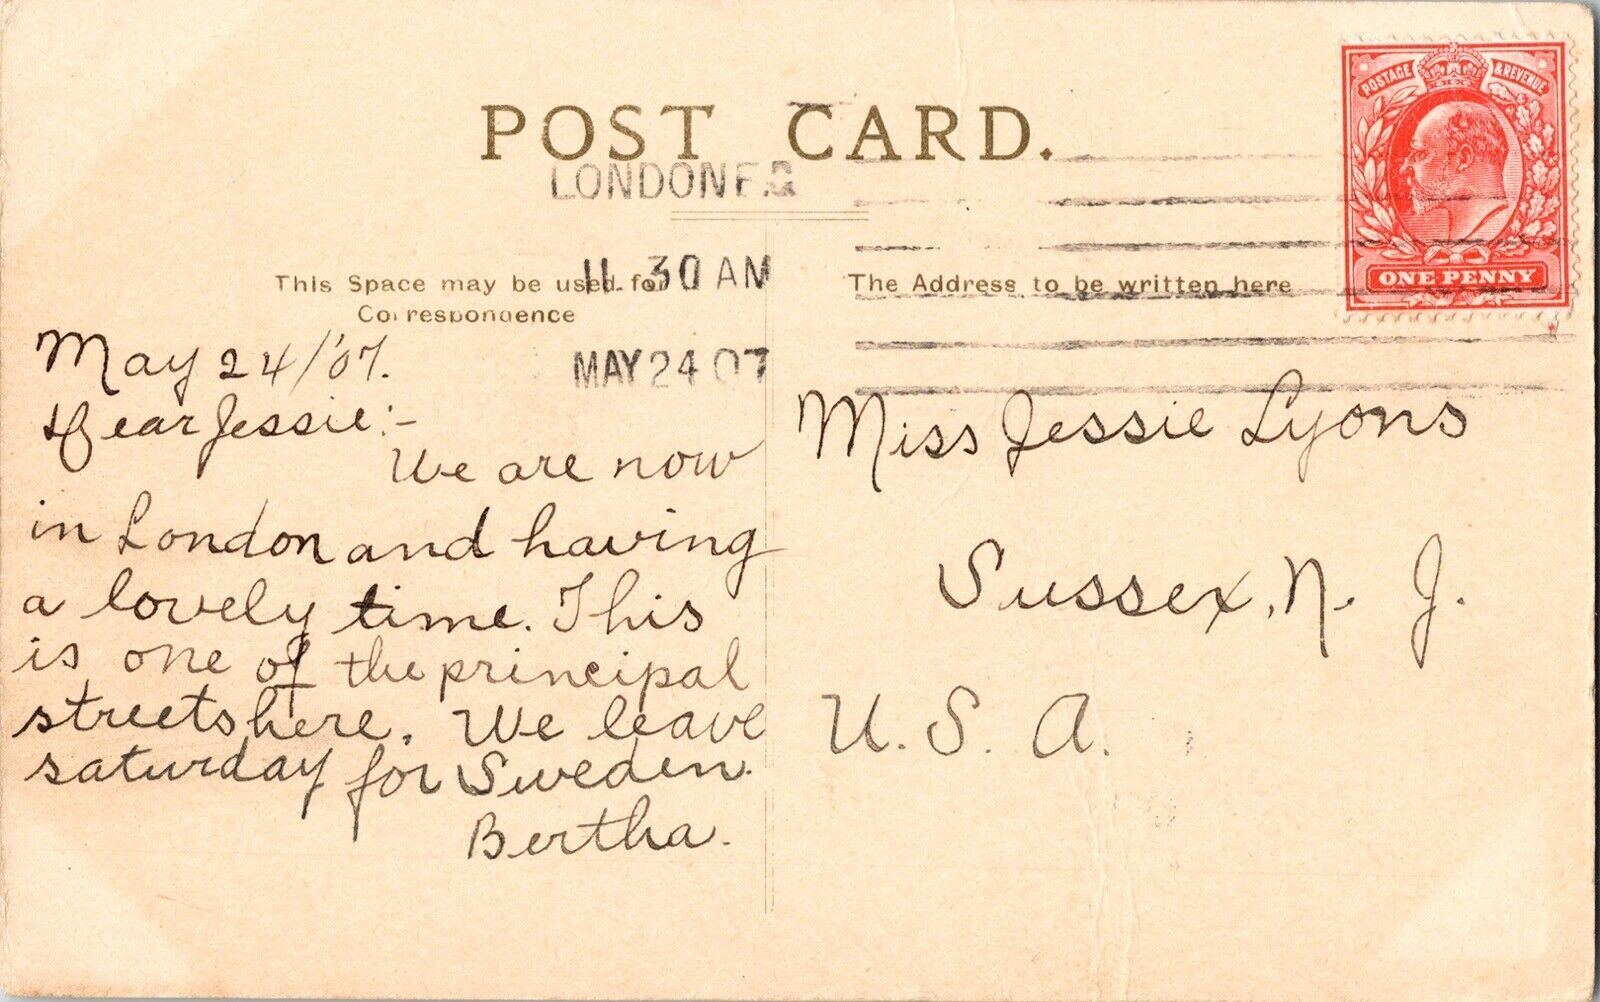 POST CARD.
LONDON
11. 30 AM
MAY 24 07
POSTAGE & REVENUE
ONE PENNY
This Space may be used for
Correspondence
The Address to be written here
May 24/'07.
Dear Jessie:-
We are now
in London and having
a lovely time. This
is one of the principal
streets here. We leave
saturday for Sweden.
Bertha.
Miss Jessie Lyons
Sussex, N. J.
U. S. A.